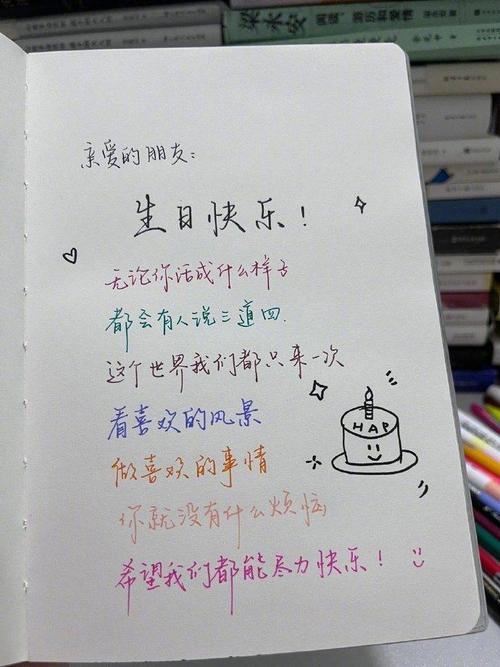 梁永安
阅读、游历和爱情
亲爱的朋友:
生日快乐!
无论你活成什么样子
都会有人说三道四.
这个世界我们都只来一次
看喜欢的风景
做喜欢的事情
你就没有什么烦恼
希望我们都能尽力快乐!
HAP